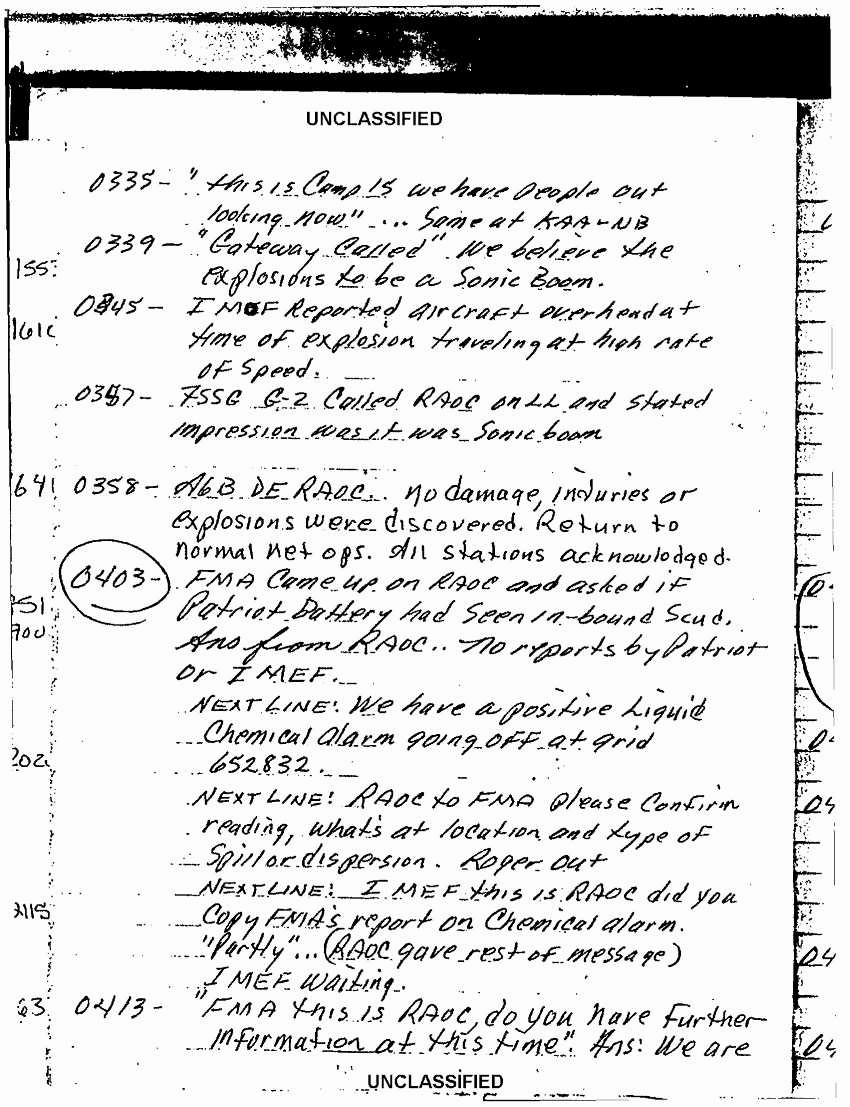 UNCLASSIFIED
0335- "this is Camp 15 we have people out
looking now"... Same at KAA-NB
0339 - "Gateway Called" We believe the
explosions to be a Sonic Boom.
155
0345 - I MEF Reported aircraft overhead at
time of explosion traveling at high rate
161
of speed.
0357- FSSG G-2 Called RAOC on LL and stated
impression was it was Sonic boom
641 0358 - A6B DE RAOC.. no damage, injuries or
explosions were discovered. Return to
normal net ops. All stations acknowledged.
0403- FMA Came up on RAOC and asked if
751
Patriot Battery had seen in-bound Scud.
900
Ans from RAOC.. No reports by Patriot
or I MEF.
NEXT LINE: We have a positive Liquid
Chemical alarm going off at grid
202
652832.
NEXT LINE: RAOC to FMA please Confirm
reading, what's at location and type of
Spill or dispersion. Roger out
NEXT LINE: I MEF this is RAOC did you
2115
Copy FMA's report on Chemical alarm.
"Partly"... (RAOC gave rest of message)
I MEF waiting.
63 0413- "FMA this is RAOC, do you have further
information at this time". Ans: We are
UNCLASSIFIED